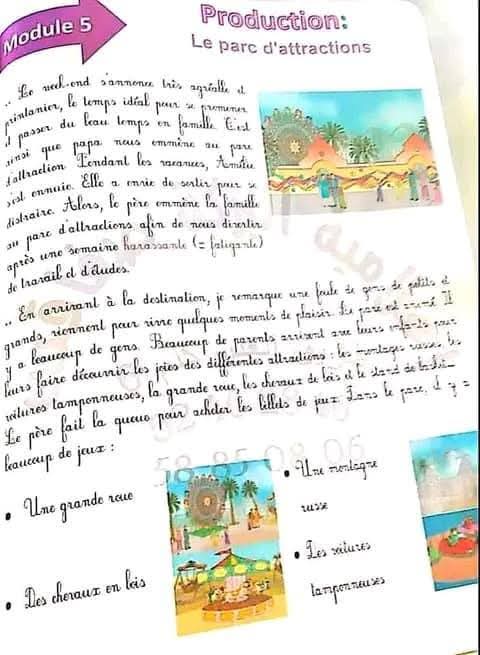 Module 5
Production:
Le parc d'attractions
.. Le week-end s'annonce très agréable et
printanier, le temps idéal pour se promener
et passer du beau temps en famille. C'est
ainsi que papa nous emmène au parc
d'attraction Pendant les vacances, Amélie
s'est ennuie. Elle a envie de sortir pour se
distraire. Alors, le père emmène la famille
au parc d'attractions afin de nous divertir
après une semaine harassante (= fatigante)
de travail et d'études.
.. En arrivant à la destination, je remarque une foule de gens de petits et
grands, viennent pour vivre quelques moments de plaisir. Le parc est animé. Il
y a beaucoup de gens. Beaucoup de parents arrivent avec leurs enfants pour
leurs faire découvrir les joies des différentes attractions : les montages russes, les
voitures tamponneuses, la grande roue, les chevaux de bois et le stand de
Le père fait la queue pour acheter les billets de jeux Dans le parc, il y a
beaucoup de jeux :
58 85 08 06
• Une grande roue
• Une montagne
russe
• Des chevaux en bois
• Les voitures
tamponneuses